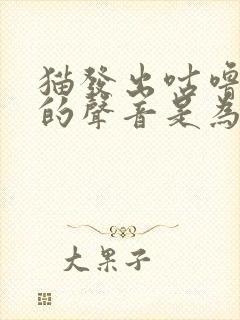 猫發出咕嚕
的聲音是為
大果子